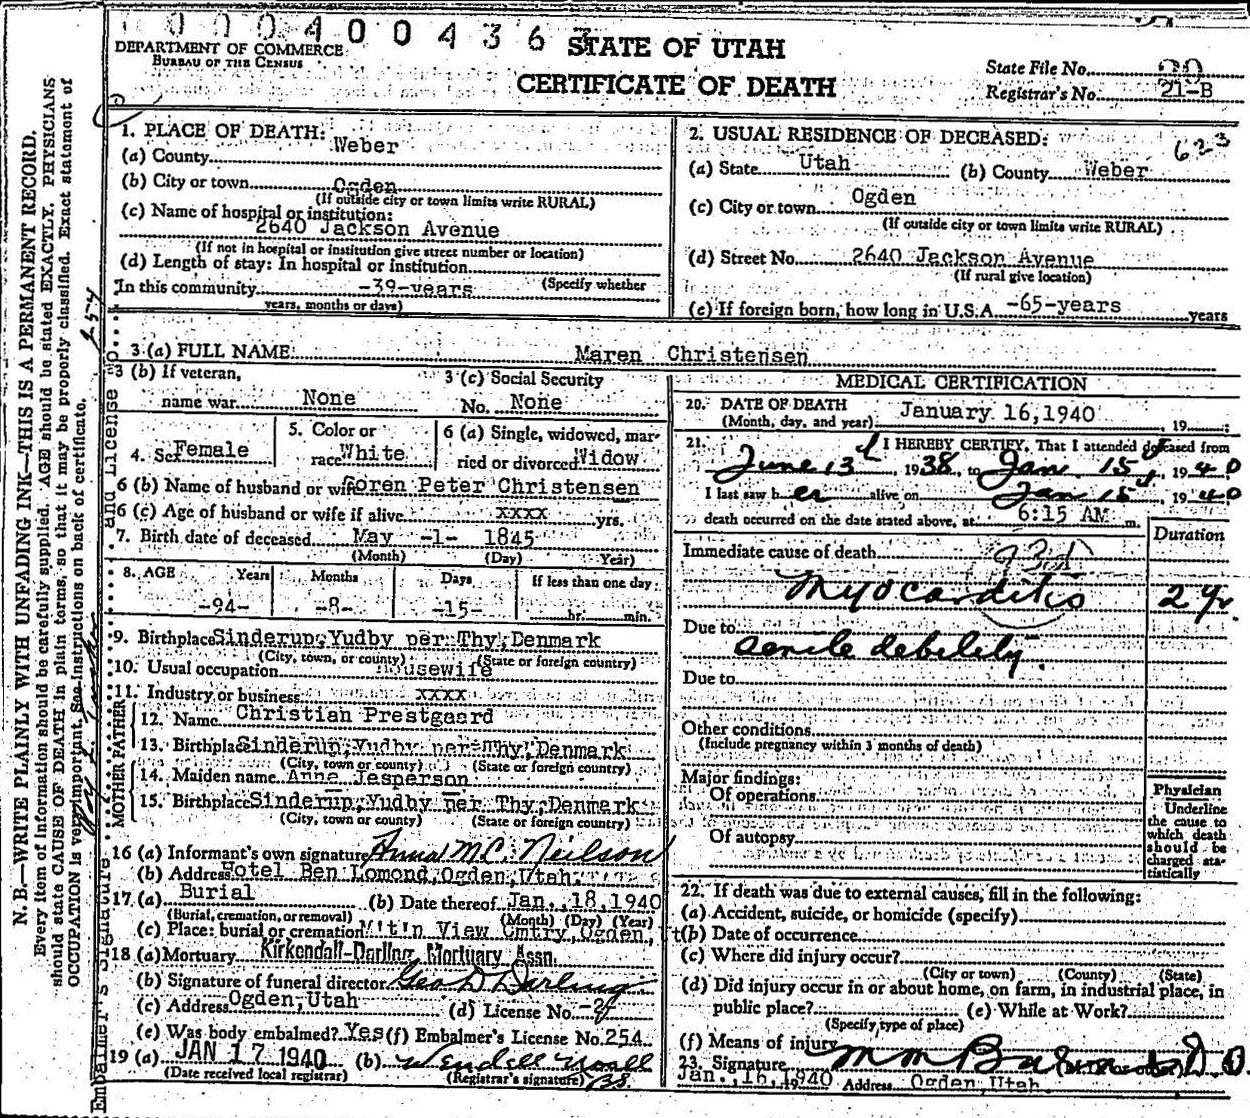 0 0 0 4 0 0 4 3 6 3
DEPARTMENT OF COMMERCE
BUREAU OF THE CENSUS
STATE OF UTAH
CERTIFICATE OF DEATH
State File No. 20
Registrar's No. 21-B
N. B.—WRITE PLAINLY WITH UNFADING INK—THIS IS A PERMANENT RECORD.
Every item of information should be carefully supplied. AGE should be stated EXACTLY. PHYSICIANS
should state CAUSE OF DEATH in plain terms, so that it may be properly classified. Exact statement of
OCCUPATION is very important. See instructions on back of certificate.
Embalmer's Signature and License No. 254
1. PLACE OF DEATH:
(a) County Weber
(b) City or town Ogden
(If outside city or town limits write RURAL)
(c) Name of hospital or institution:
2640 Jackson Avenue
(If not in hospital or institution give street number or location)
(d) Length of stay: In hospital or institution
(Specify whether
In this community -39-years
years, months or days)
2. USUAL RESIDENCE OF DECEASED:
623
(a) State Utah (b) County Weber
(c) City or town Ogden
(If outside city or town limits write RURAL)
(d) Street No. 2640 Jackson Avenue
(If rural give location)
(e) If foreign born, how long in U.S.A. -65-years years
3 (a) FULL NAME Maren Christensen
3 (b) If veteran,
name war None
3 (c) Social Security
No. None
4. Sex Female
5. Color or
race White
6 (a) Single, widowed, mar-
ried or divorced Widow
6 (b) Name of husband or wife Soren Peter Christensen
6 (c) Age of husband or wife if alive xxxx yrs.
7. Birth date of deceased May -1- 1845
(Month) (Day) Year)
8. AGE Years Months Days If less than one day
-94- -8- -15- hr. min.
9. Birthplace Sinderup, Yudby per Thy, Denmark
(City, town, or county) (State or foreign country)
10. Usual occupation Housewife
11. Industry or business xxxx
FATHER
12. Name Christian Prestgaard
13. Birthplace Sinderup, Yudby per Thy, Denmark
(City, town or county) (State or foreign country)
MOTHER
14. Maiden name Anne Jesperson
15. Birthplace Sinderup, Yudby per Thy, Denmark
(City, town or county) (State or foreign country)
16 (a) Informant's own signature Anna M C. Neilson
(b) Address Hotel Ben Lomond, Ogden, Utah.
17 (a) Burial (b) Date thereof Jan. 18, 1940
(Burial, cremation, or removal) (Month) (Day) (Year)
(c) Place: burial or cremation M't'n View Cmtry, Ogden, Ut
18 (a) Mortuary Kirkendall-Darling Mortuary Assn.
(b) Signature of funeral director Geo D Darling
(c) Address Ogden, Utah (d) License No.
(e) Was body embalmed? Yes (f) Embalmer's License No. 254
19 (a) JAN 17 1940 (b) Wendell Noall
(Date received local registrar) (Registrar's signature)
MEDICAL CERTIFICATION
20. DATE OF DEATH
(Month, day, and year) January 16, 1940, 19
21. I HEREBY CERTIFY, That I attended deceased from
June 13th, 1938, to Jan 15, 1940
I last saw her alive on Jan 15, 1940
death occurred on the date stated above, at 6:15 AM m.
Duration
Immediate cause of death 93d
Myocarditis 2 yr.
Due to senile debility.
Due to
Other conditions
(Include pregnancy within 3 months of death)
Major findings:
Of operations
Of autopsy
Physician
Underline
the cause to
which death
should be
charged sta-
tistically
22. If death was due to external causes, fill in the following:
(a) Accident, suicide, or homicide (specify)
(b) Date of occurrence
(c) Where did injury occur?
(City or town) (County) (State)
(d) Did injury occur in or about home, on farm, in industrial place, in
public place? (e) While at Work?
(Specify type of place)
(f) Means of injury
23. Signature
Jan. 16, 1940 Address Ogden, Utah